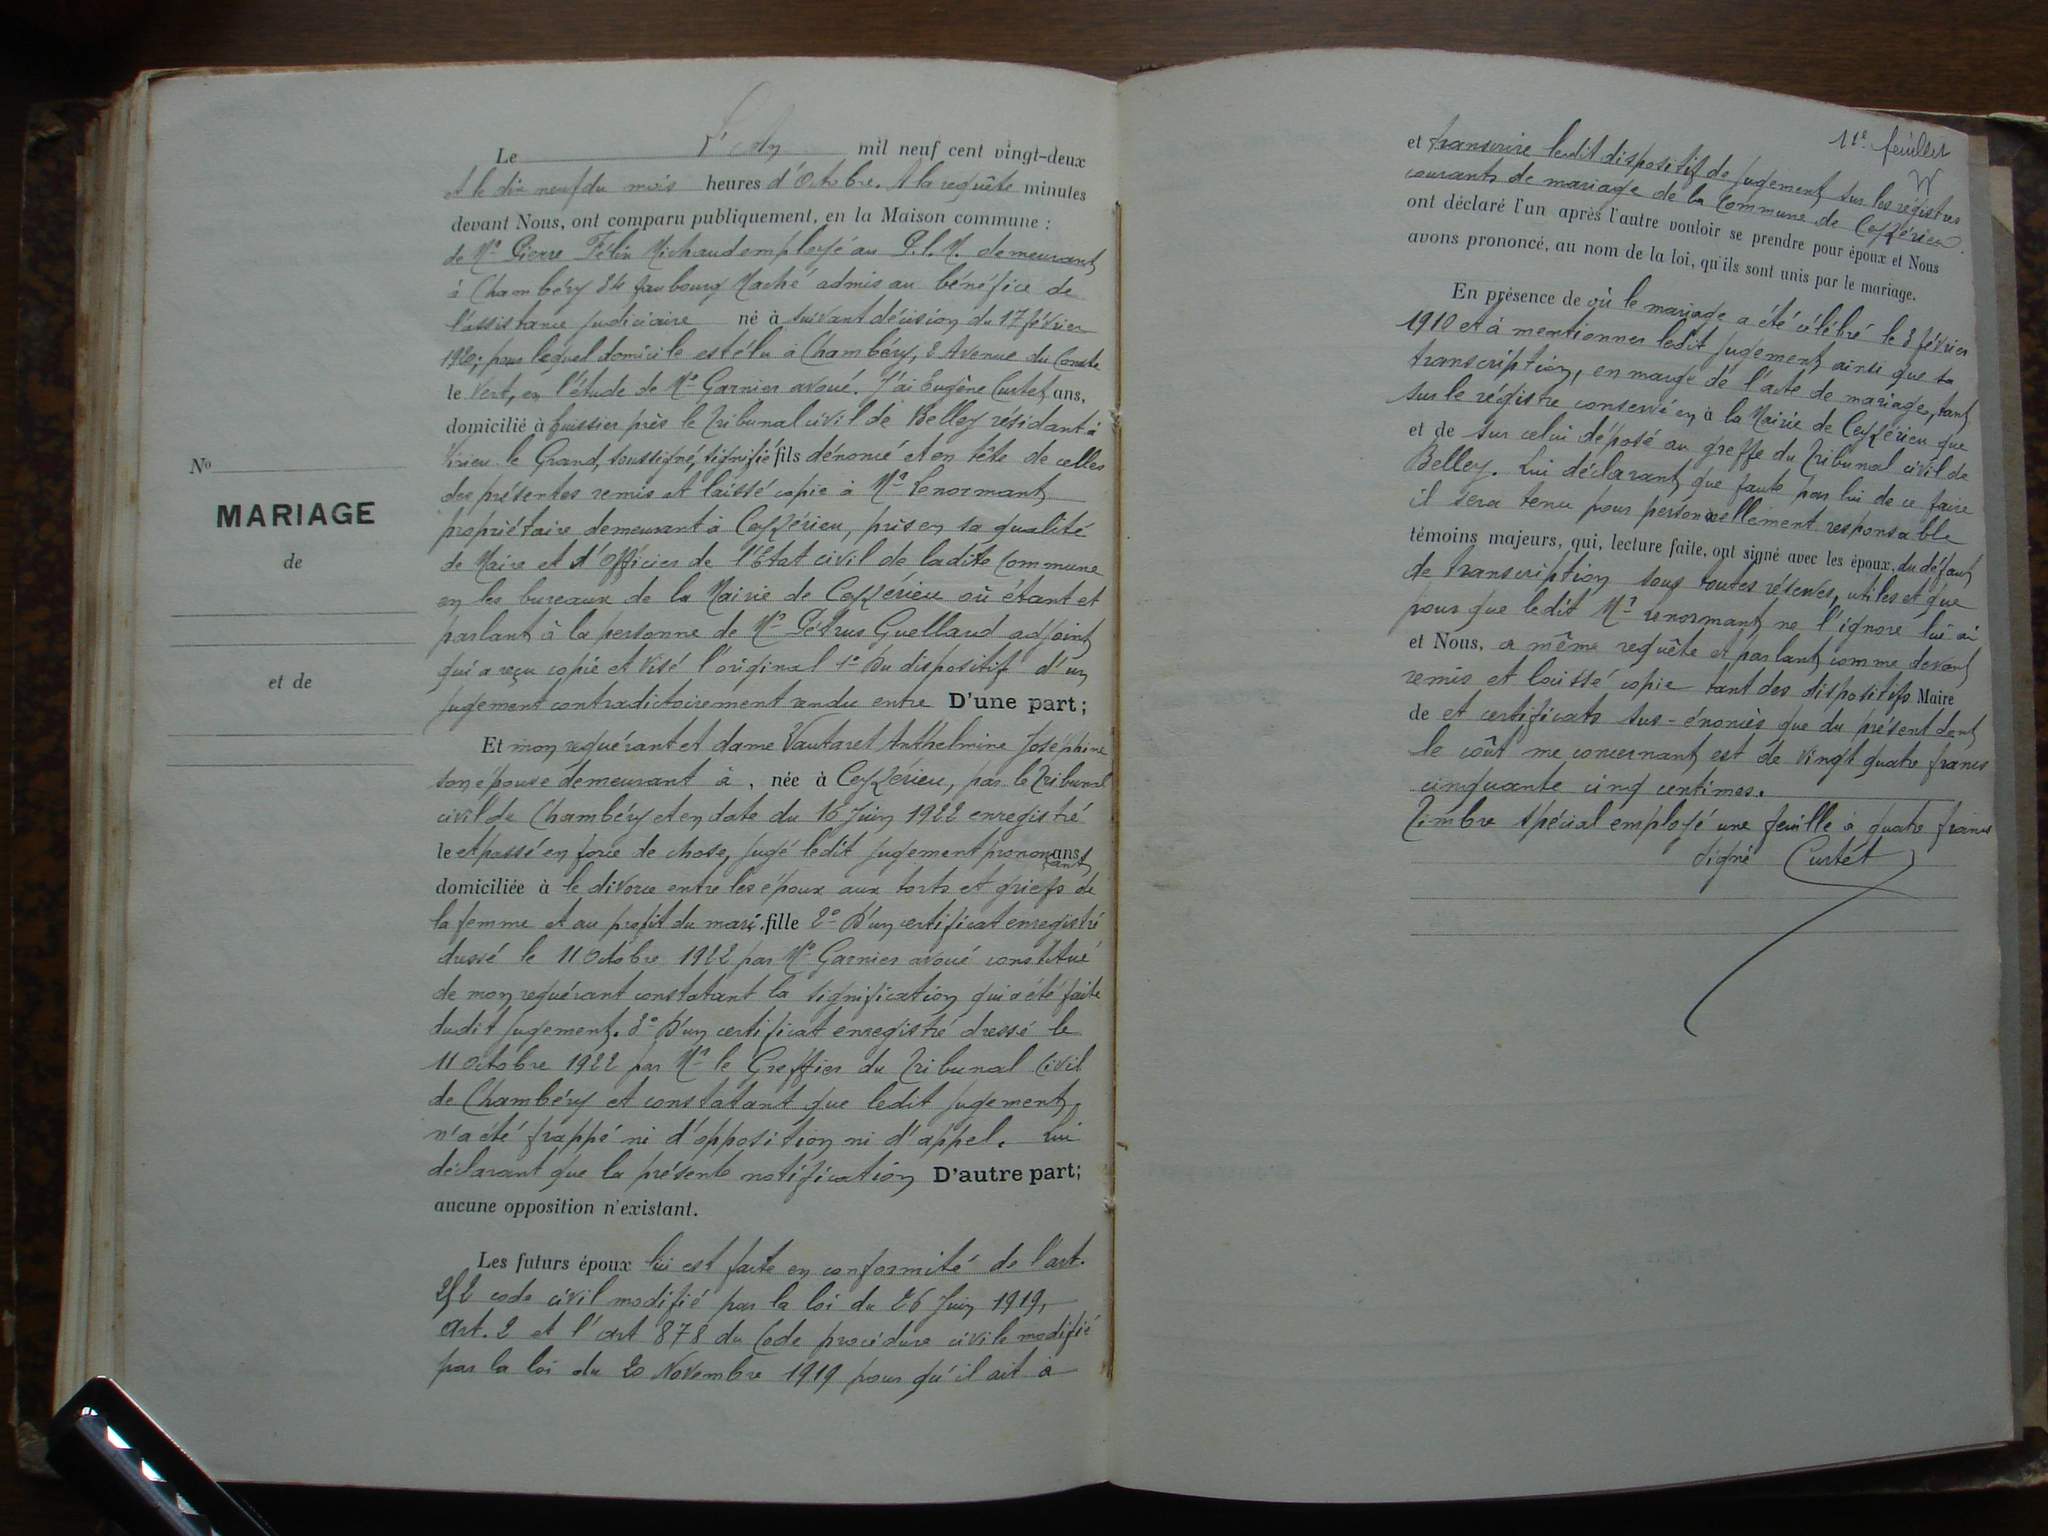 Le L'an mil neuf cent vingt-deux
et le dix neuf du mois heures d'Octobre. A la requête minutes
devant Nous, ont comparu publiquement, en la Maison commune :
de Mr Pierre Félix Michaud employé au P.L.M. demeurant
à Chambéry 84 faubourg Maché admis au bénéfice de
l'assistance judiciaire né à suivant décision du 17 février
1920; pour lequel domicile est élu à Chambéry, 2 Avenue du Comte
le Vert, en l'étude de Me Garnier avoué. J'ai Eugène Curtet ans,
domicilié à huissier près le Tribunal civil de Belley résidant à
Virieu le Grand, soussigné, signifié fils dénoncé et en tête de celles
des présentes remis et laissé copie à Mr Lenormant
propriétaire demeurant à Ceyzérieu, pris en sa qualité
de Maire et d'Officier de l'Etat civil de ladite Commune
en les bureaux de la Mairie de Ceyzérieu où étant et
parlant à la personne de Mr Pétrus Guelland adjoint
qui a reçu copie et visé l'original 1o Du dispositif d'un
jugement contradictoirement rendu entre D'une part;
Et mon requérant et dame Vautaret Anthelmine Joséphine
son épouse demeurant à , née à Ceyzérieu, par le Tribunal
civil de Chambéry et en date du 16 Juin 1922 enregistré
le et passé en force de chose, jugé ledit jugement prononçant ans
domiciliée à le divorce entre les époux aux torts et griefs de
la femme et au profit du mari. fille 2o D'un certificat enregistré
dressé le 11 Octobre 1922 par Me Garnier avoué constitué
de mon requérant constatant la signification qui a été faite
dudit jugement. 3o D'un certificat enregistré dressé le
11 Octobre 1922 par Mr le Greffier du Tribunal Civil
de Chambéry et constatant que ledit jugement
n'a été frappé ni d'opposition ni d'appel. Lui
déclarant que la présente notification D'autre part;
aucune opposition n'existant.
Les futurs époux lui est faite en conformité de l'art.
252 code civil modifié par la loi du 26 Juin 1919,
Art. 2 et l'art 878 du Code procédure civile modifié
par la loi du 20 Novembre 1919 pour qu'il ait à
No
MARIAGE
de
et de
11e feuillet
et transcrire ledit dispositif de jugement sur les régistres
courants de mariage de la Commune de Ceyzérieu
ont déclaré l'un après l'autre vouloir se prendre pour époux et Nous
avons prononcé, au nom de la loi, qu'ils sont unis par le mariage.
En présence de où le mariage a été célébré le 8 février
1910 et à mentionner ledit jugement ainsi que sa
transcription, en marge de l'acte de mariage, tant
sur le régistre conservé en à la Mairie de Ceyzérieu que
et de sur celui déposé au greffe du Tribunal civil de
Belley. Lui déclarant que faute par lui de ce faire
il sera tenu pour personnellement responsable
témoins majeurs, qui, lecture faite, ont signé avec les époux, du défaut
de transcription sous toutes réserves, utiles et que
pour que ledit Mr Lenormant ne l'ignore lui ai
et Nous, a même requête et parlant comme devant
remis et laissé copie tant des dispositifs Maire
de et certificats sus-énoncés que du présent dont
le coût me concernant est de vingt quatre francs
cinquante cinq centimes.
Timbre spécial employé une feuille à quatre francs
Signé Curtet